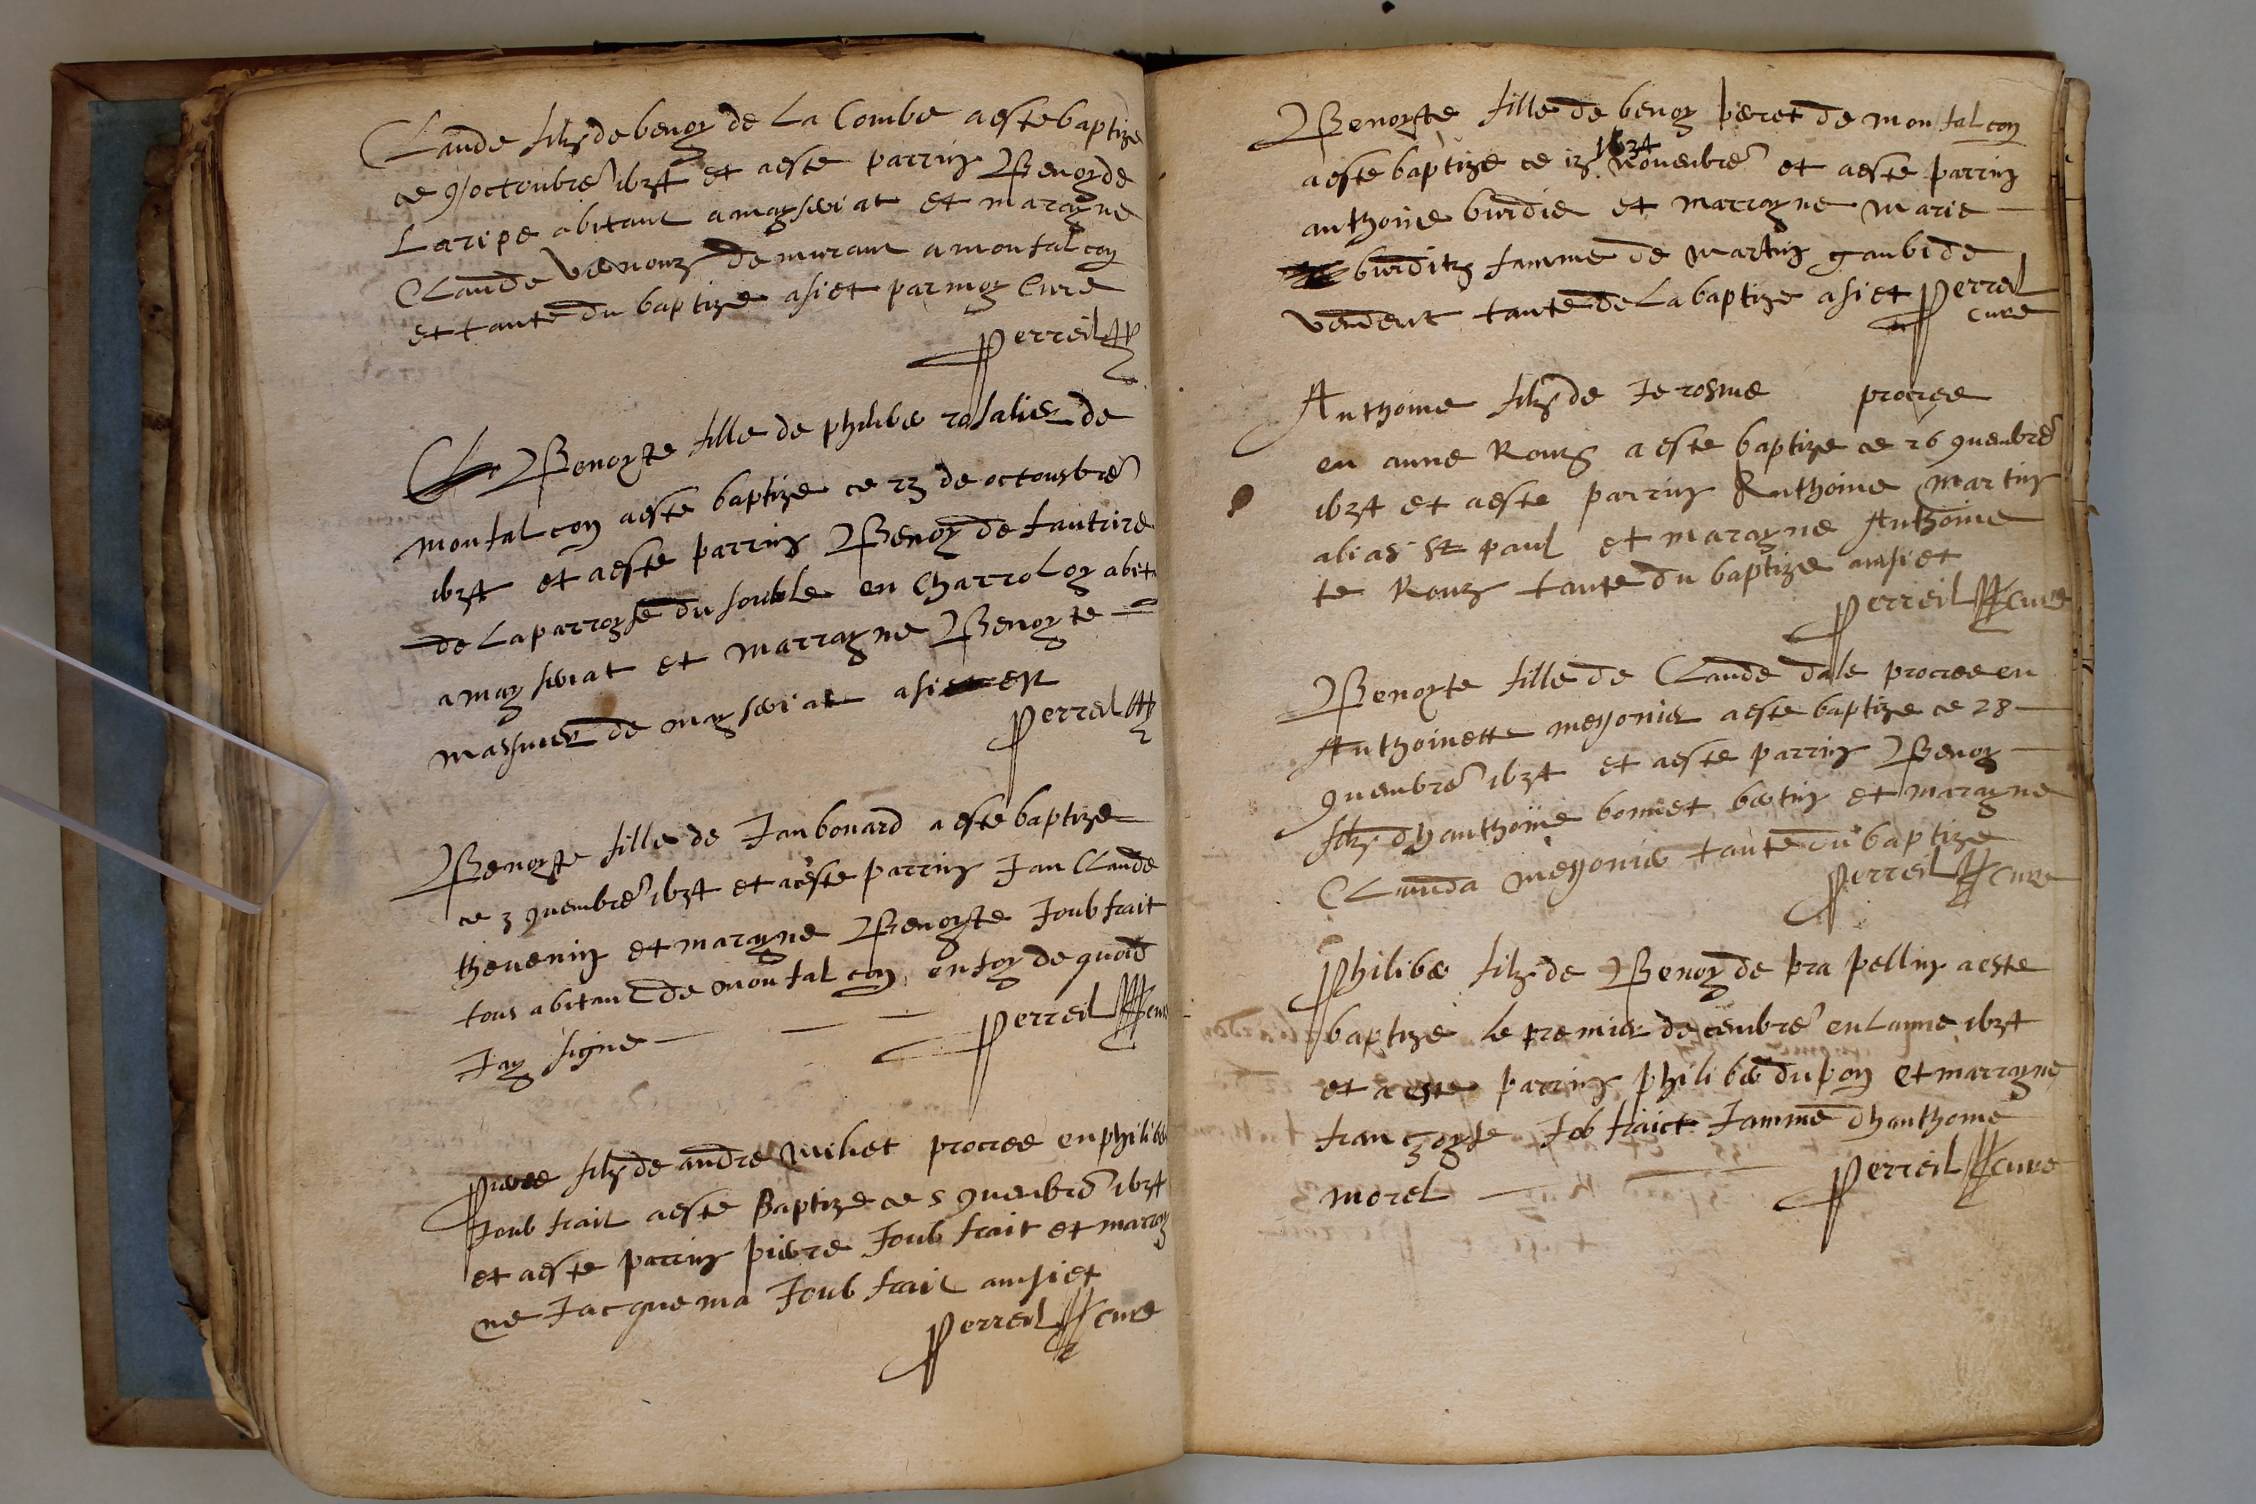 Claude filz de benoy de La Combe a este baptize
ce 9 octoubre 1634 et a este parrin Benoy de
Laripe abitant a mayseriat et marayne
Claude demurant a montfalcon
et tante du baptize a siet par moy Cure
Perreil
Benoyste fille de philibe de
montfalcon a este baptize ce 23 de octousbre
1634 et a este parrin Benoy de
de la parroyse du souble en Charroloy abit
a mayseriat et marrayne Benoyte
de mayseriat asi
Perreil
Benoyste fille de Jan bonard a este baptize
ce 3 9uembre 1634 et a este parrin Jan Claude
thevenin et marayne Benoyste Joubfrait
tous abitant de montfalcon en foy de quoy
Jay signe
Perreil cure
Piere filz de andre milliet procree en philibe
Joubfrait a este Baptize ce 5 9uembre 1634
et a este parrin pierre Joubfrait et marray
ne Jacquema Joubfrait ansi et
Perreil cure
Benoyste fille de benoy peret de montfalcon
1634
a este baptize ce 13 novembre et a este parrin
anthoine burdie et marrayne marie
burditz famme de martin gaubide
tante de la baptize asi et Perreil
cure
Anthoine filz de Jerosme procree
en anne Rouz a este baptize ce 26 9uembre
1634 et a este parrin Anthoine martin
alias St paul et marayne Anthoine
te Rouz tante du baptize ansi et
Perreil cure
Benoyte fille de Claude dale procree en
Anthoinette meyonier a este baptize ce 28
9uembre 1634 et a este parrin Benoy
filz dhanthoine bonnet et marayne
Clauda meyonie tante du baptize
Perreil cure
Philibe filz de Benoy de pra pellin a este
baptize le premier decembre en lanne 1634
et a este parrin philibe dupon et marrayne
franzoyse Jobfraict famme dhanthoine
morel
Perreil cure